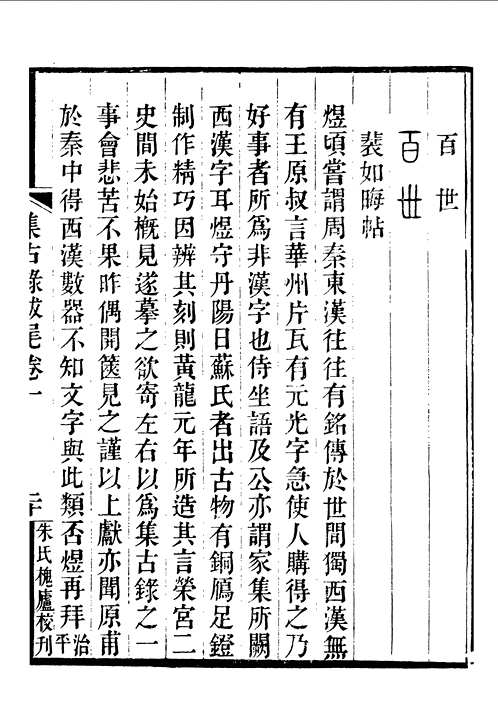 百世
百世
裴如晦帖
煜頃嘗謂周秦東漢往往有銘傳於世間獨西漢無
有王原叔言華州片瓦有元光字急使人購得之乃
好事者所爲非漢字也侍坐語及公亦謂家集所闕
西漢字耳煜守丹陽日蘇氏者出古物有銅鴈足鐙
制作精巧因辨其刻則黃龍元年所造其言榮宮二
史間未始概見遂摹之欲寄左右以爲集古錄之一
事會悲苦不果昨偶開篋見之謹以上獻亦聞原甫
於秦中得西漢數器不知文字與此類否煜再拜治平
集古錄跋尾卷一
二十
朱氏槐廬校刊